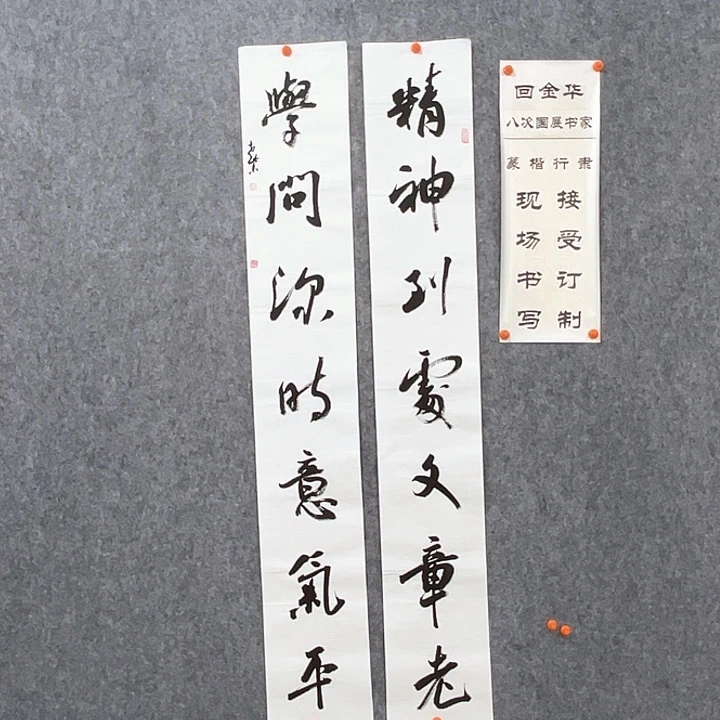 精神到處文章老
學問深時意氣平
回金华
八次国展书家
篆楷行隶
接受订制
现场书写